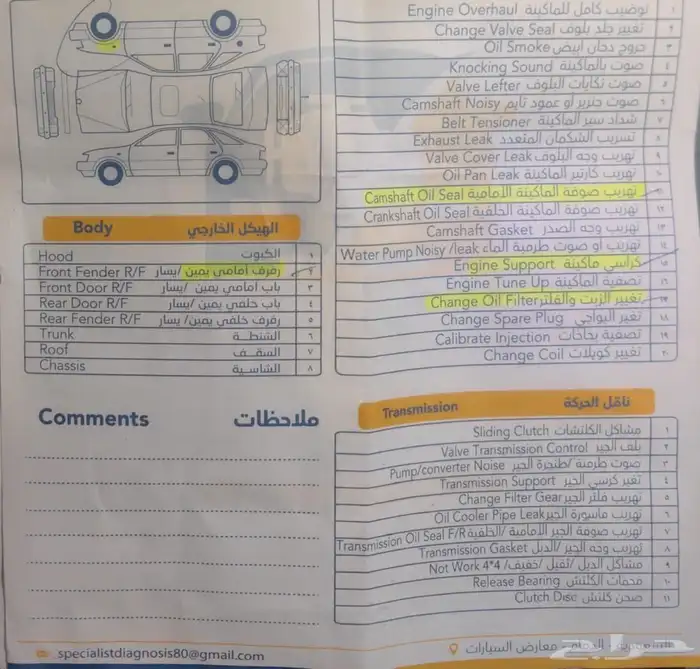 Engine Overhaul توضيب كامل للماكينة ١
Change Valve Seal تغيير جلد بلوف ٢
Oil Smoke خروج دخان ابيض ٣
Knocking Sound صوت بالماكينة ٤
Valve Lefter صوت تكايات البلوف ٥
Camshaft Noisy صوت جنزير او عمود تايم ٦
Belt Tensioner شداد سير الماكينة ٧
Exhaust Leak تسريب الشكمان المتعدد ٨
Valve Cover Leak تهريب وجه البلوف ٩
Oil Pan Leak تهريب كارتير الماكينة ١٠
Camshaft Oil Seal تهريب صوفة الماكينة الأمامية ١١
Crankshaft Oil Seal تهريب صوفة الماكينة الخلفية ١٢
Camshaft Gasket تهريب وجه الصدر ١٣
Water Pump Noisy /leak تهريب او صوت طرمبة الماء ١٤
Engine Support كراسي ماكينة ١٥
Engine Tune Up تصفية الماكينة ١٦
Change Oil Filter تغيير الزيت والفلتر ١٧
Change Spare Plug تغير البواجي ١٨
Calibrate Injection تصفية بخاخات ١٩
Change Coil تغيير كويلات ٢٠
Body الهيكل الخارجي
Hood الكبوت ١
Front Fender R/F رفرف أمامي يمين /يسار ٢
Front Door R/F باب أمامي يمين /يسار ٣
Rear Door R/F باب خلفي يمين /يسار ٤
Rear Fender R/F رفرف خلفي يمين /يسار ٥
Trunk الشنطة ٦
Roof السقف ٧
Chassis الشاسية ٨
Comments ملاحظات
Transmission ناقل الحركة
Sliding Clutch مشاكل الكلتشات ١
Valve Transmission Control بلف الجير ٢
Pump/converter Noise صوت طرمبة /طنجرة الجير ٣
Transmission Support تغير كرسي الجير ٤
Change Filter Gear تهريب فلتر الجير ٥
Oil Cooler Pipe Leak تهريب ماسورة الجير ٦
Transmission Oil Seal F/R تهريب صوفة الجير الأمامية /الخلفية ٧
Transmission Gasket تهريب وجه الجير /الدبل ٨
Not Work 4*4 مشاكل الدبل /ثقيل /خفيف ٩
Release Bearing فحمات الكلتش ١٠
Clutch Disc صحن كلتش ١١
specialistdiagnosis80@gmail.com
معارض السيارات
حراج